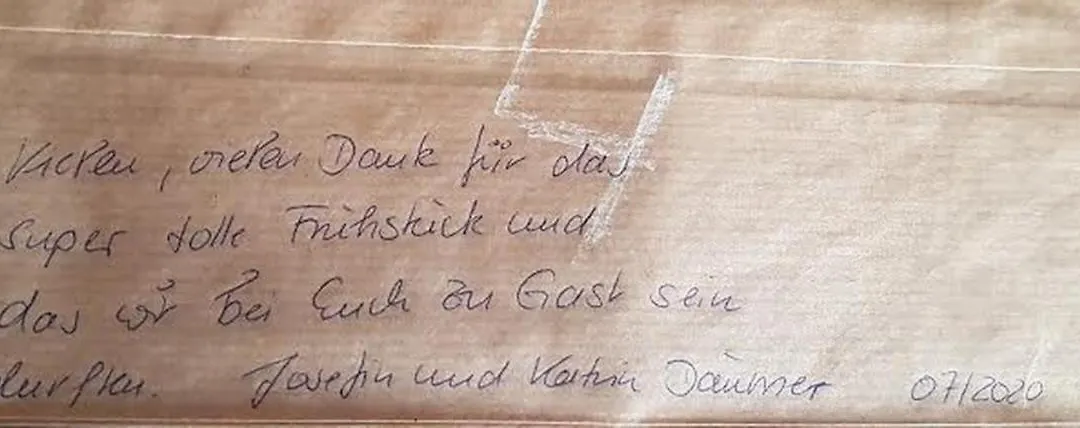 Vielen, vielen Dank für das
super tolle Frühstück und
das wir bei Euch zu Gast sein
durften. Josefin und Katrin Däumer 07/2020